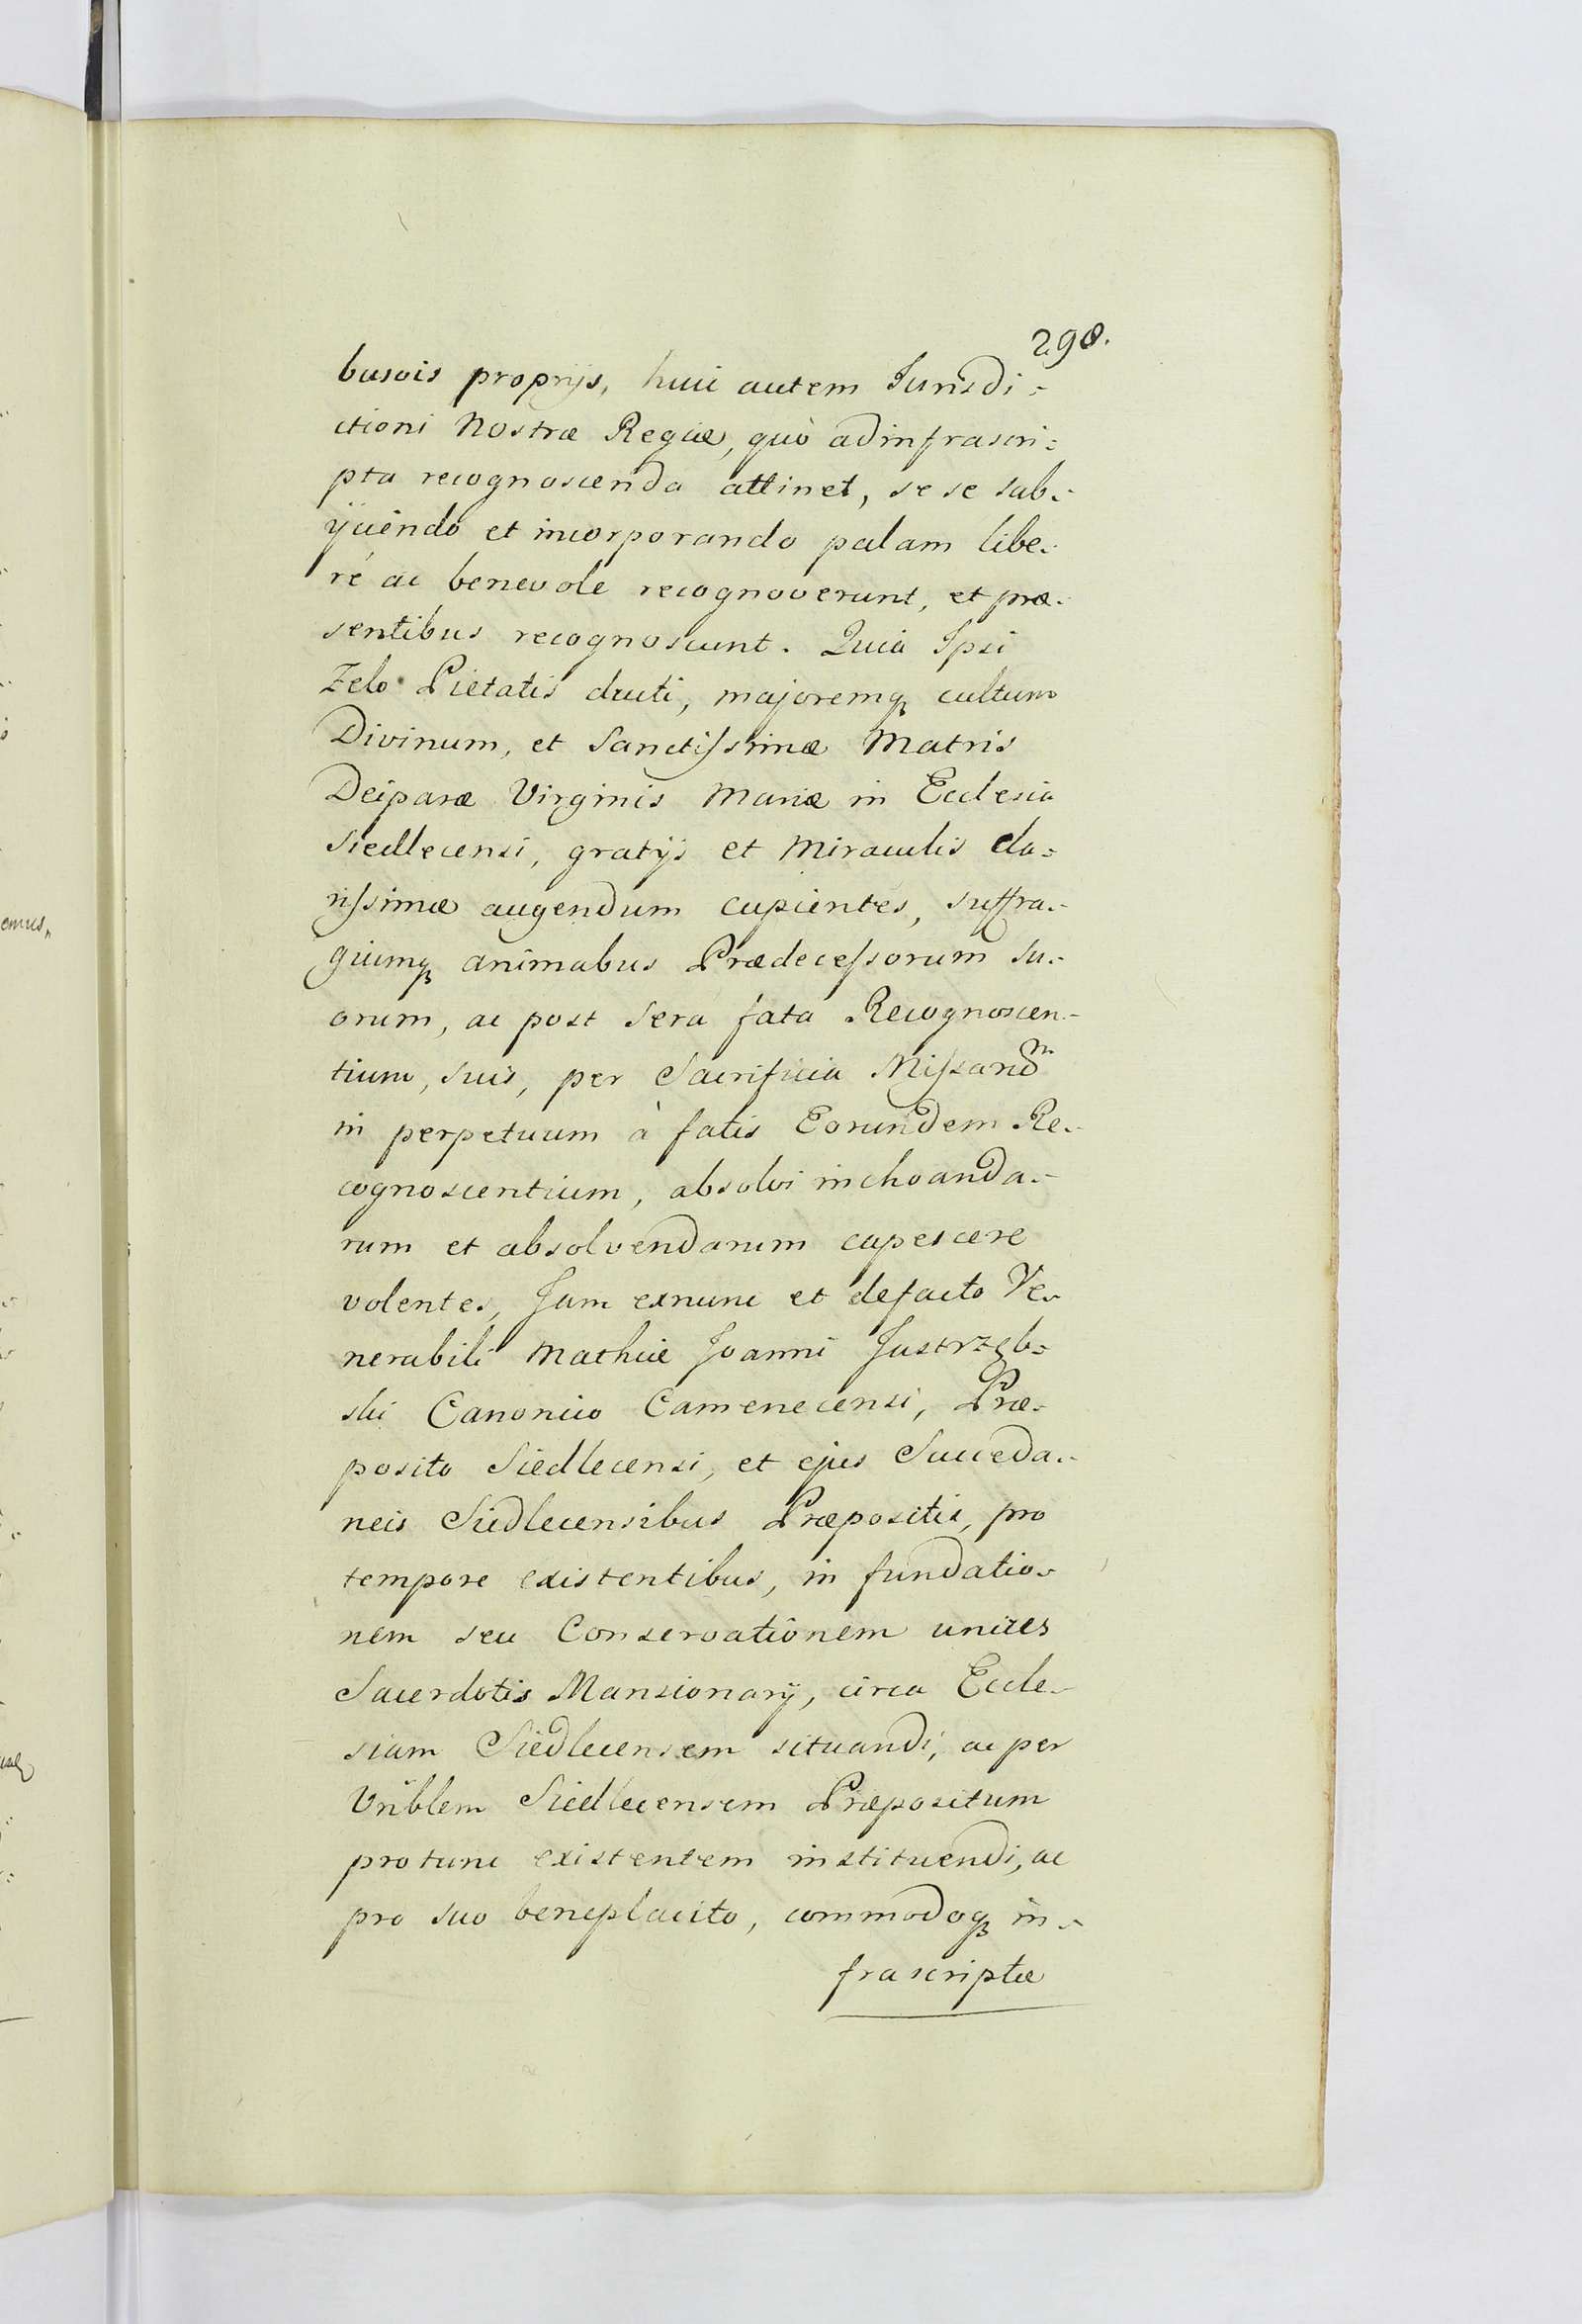 298.
busvis proprijs, huic autem Jurisdi=
ctioni Nostræ Regiæ, quò adinfrascri=
pta recognoscenda attinet, se se sub=
ijciendo et incorporando palam libe=
ré ac benevole recognoverunt, et præ=
sentibus recognoscunt. Quia Ipsi
Zelo Pietatis ducti, majoremq cultum
Divinum, et Sanctissimæ Matris
Deiparæ Virginis Mariæ in Ecclesia
Siedlecensi, gratijs et Miraculis cla=
rissimæ augendum cupientes, suffra=
giumq animabus Prædecessorum su=
orum, ac post sera fata Recognoscen=
tium, suis, per Sacrificia Missarum
in perpetuum à fatis Eorundem Re=
cognoscentium, absolvi inchoanda=
rum et absolvendarum capescere
volentes, Jam exnunc et defacto Ve=
nerabili Mathiæ Joanni Jastrzęb=
ski Canonico Camenecensi, Præ=
posito Siedlecensi, et ejus Succeda=
neis Siedlecensibus Præpositis, pro
tempore existentibus, in fundatio=
nem seu Conservationem unius
Sacerdotis Mansionarij, circa Eccle=
siam Siedlecensem situandi, ac per
Vnblem Siedlecensem Præpositum
protunc existentem instituendi, ac
pro suo beneplacito, commodoq in=
frascriptæ